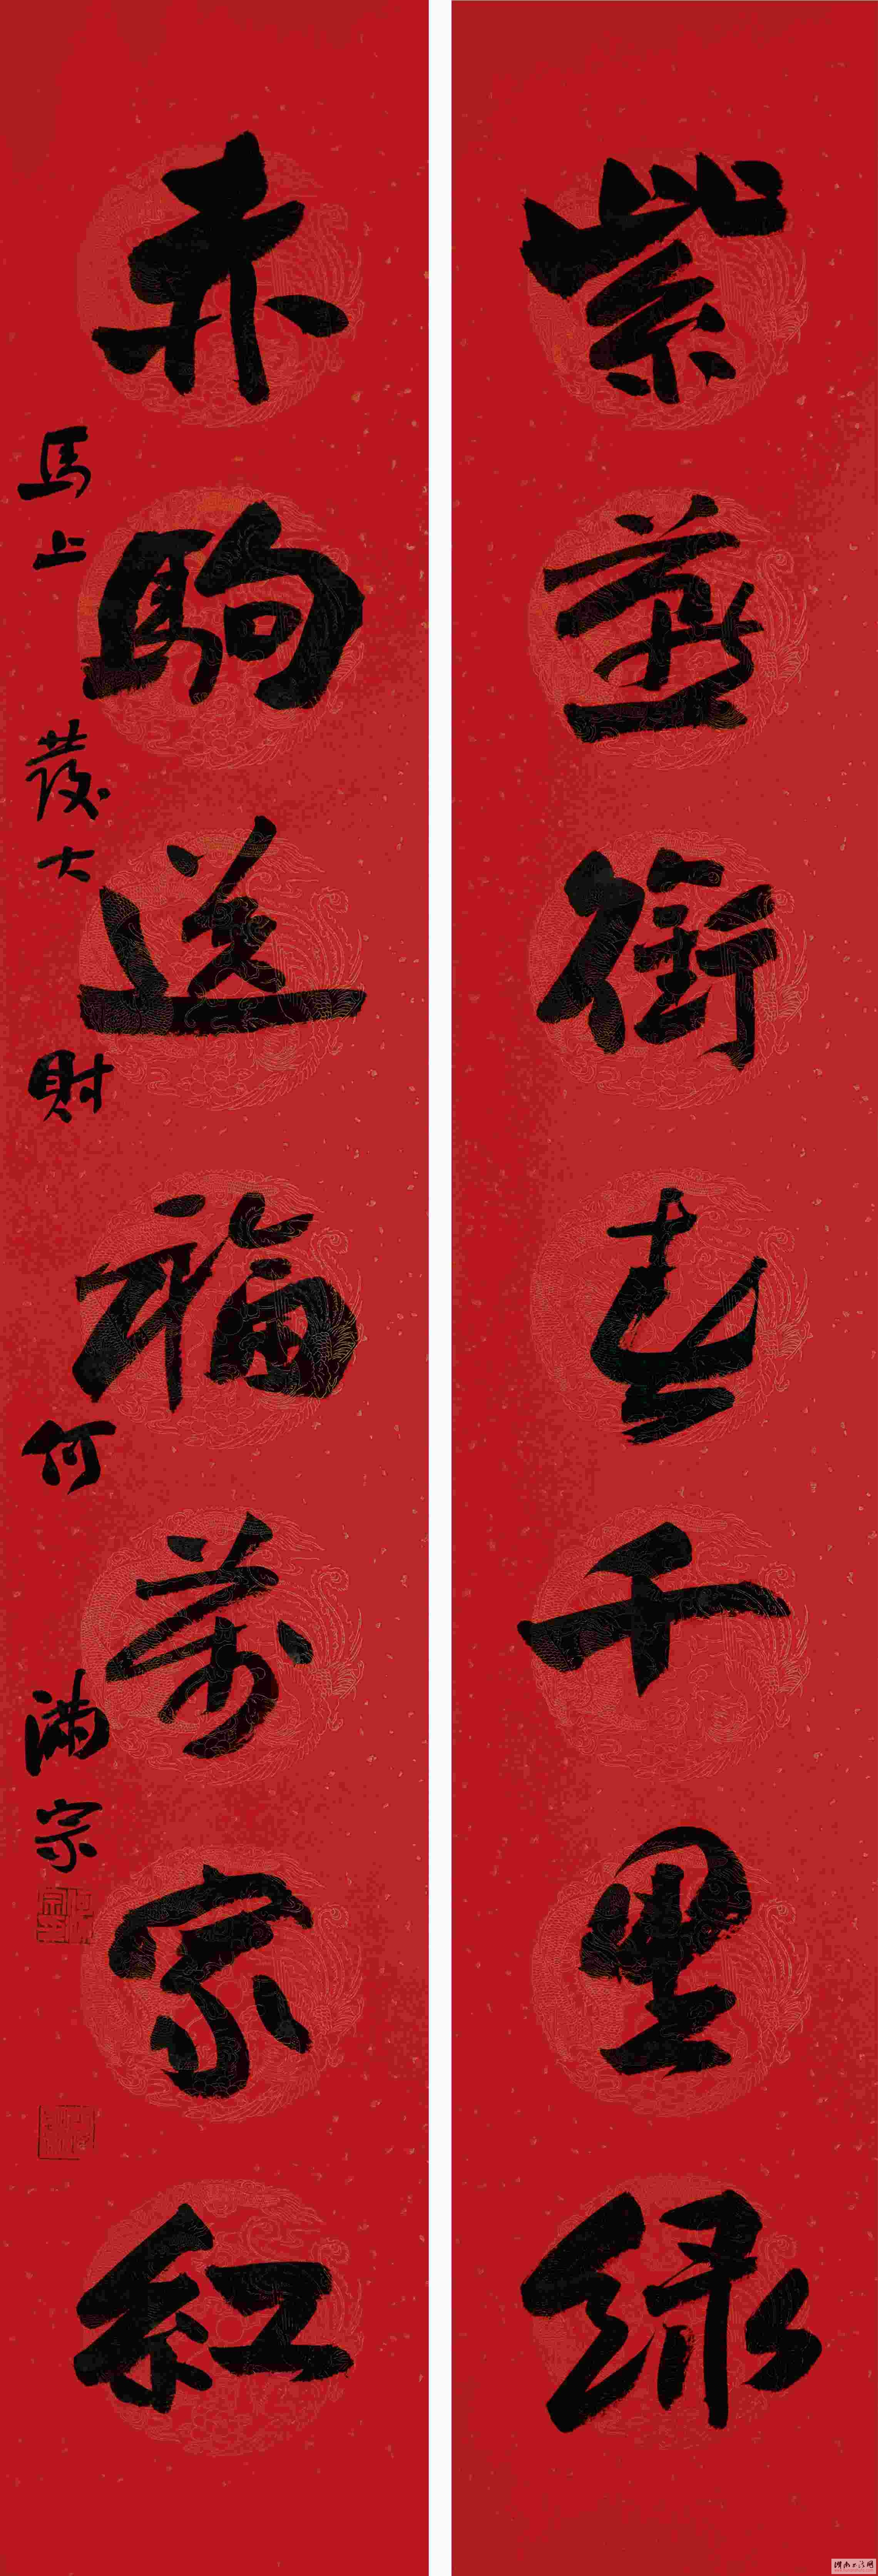 紫燕銜春千里绿
赤駒送福萬家紅
馬上發大財 何滿宗